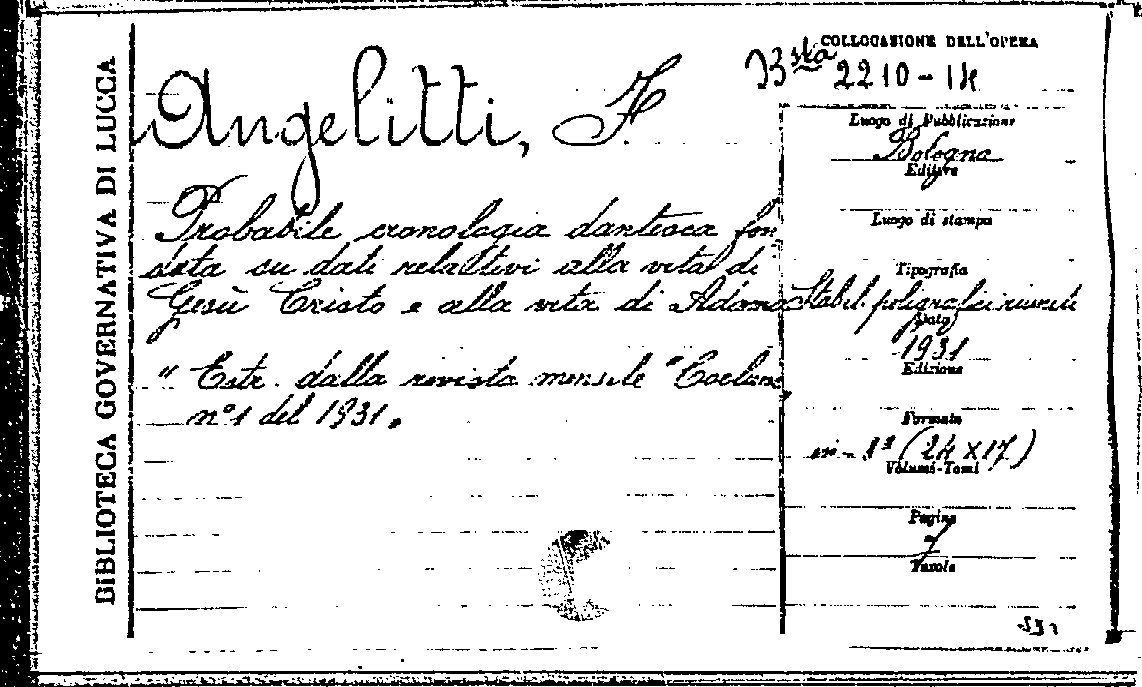 BIBLIOTECA GOVERNATIVA DI LUCCA
Angelitti, F.
Probabile cronologia dantesca fon
data su dati relattivi alla vita di
Gesù Cristo e alla vita di Adamo
" Estr. dalla rivista mensile "Coelum
n°1 del 1931.
COLLOCAZIONE DELL'OPERA
Bsta 2210-14
Luogo di Pubblicazione
Bologna
Editore
Luogo di stampa
Tipografia
Stabil. poligrafici riuniti
Data
1931
Edizione
Formato
in-8° (24x17)
Volumi-Tomi
Pagine
7
Tavole